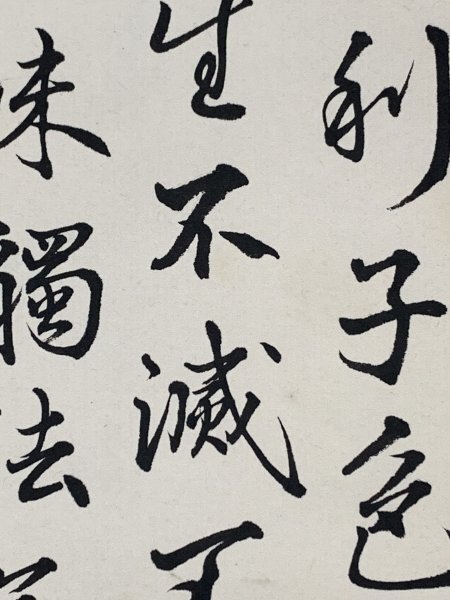 利子色
生不滅不
味觸法